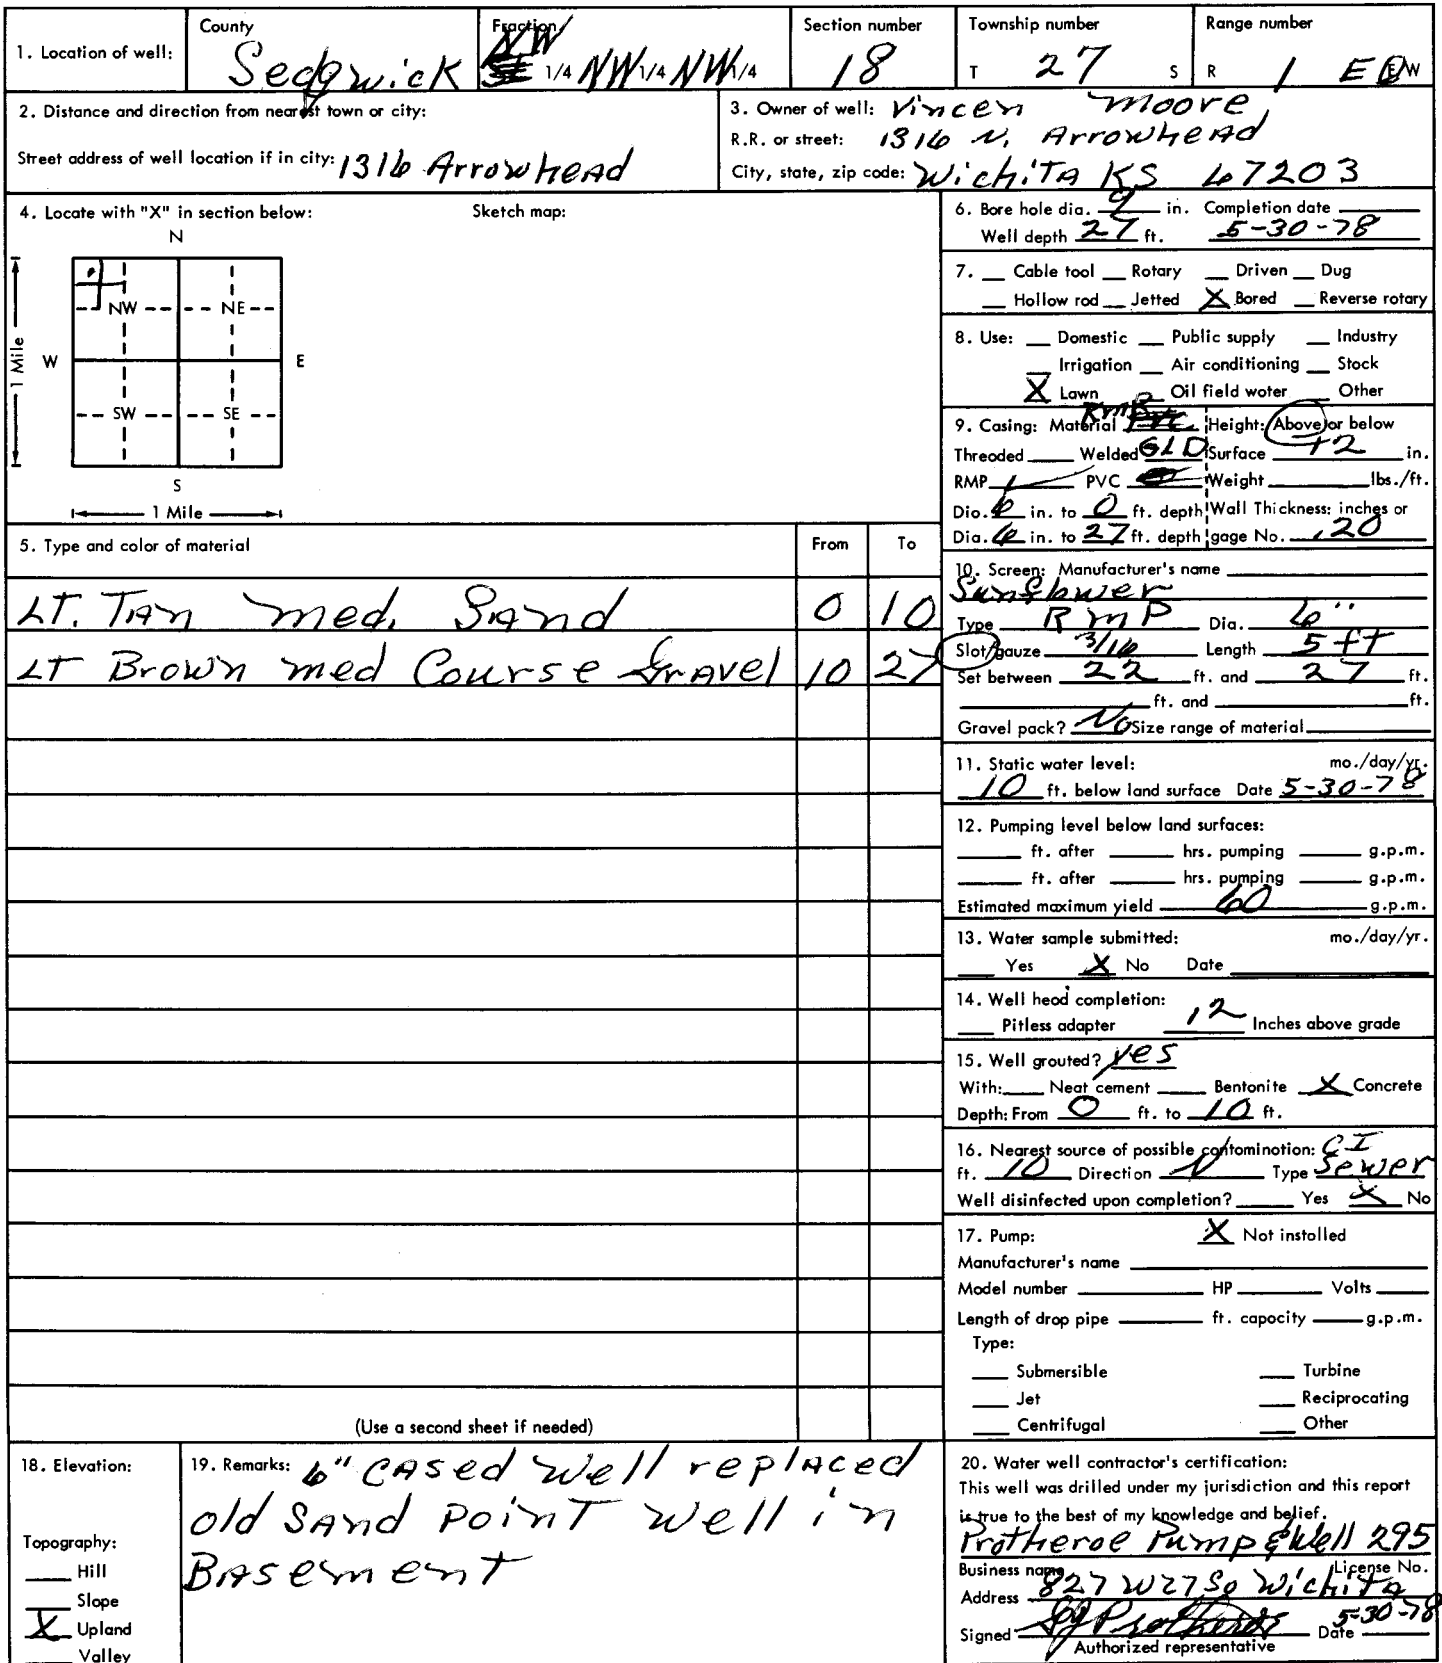 1. Location of well:
County
Sedgwick
Fraction
NW 1/4 NW 1/4 NW 1/4
Section number
18
Township number
T 27 S
Range number
R 1 E E/W
2. Distance and direction from nearest town or city:
Street address of well location if in city: 1316 Arrowhead
3. Owner of well: Vincen Moore
R.R. or street: 1316 N. Arrowhead
City, state, zip code: Wichita KS 67203
4. Locate with "X" in section below:
Sketch map:
N
NW NE
W E
1 Mile
SW SE
S
1 Mile
5. Type and color of material From To
LT. Tan med. Sand 0 10
LT Brown med Course Gravel 10 27
(Use a second sheet if needed)
6. Bore hole dia. 9 in. Completion date
Well depth 27 ft. 5-30-78
7. Cable tool Rotary Driven Dug
Hollow rod Jetted X Bored Reverse rotary
8. Use: Domestic Public supply Industry
Irrigation Air conditioning Stock
X Lawn Oil field water Other
9. Casing: Material RMP Height: Above or below
Threaded Welded GLD Surface 12 in.
RMP PVC Weight lbs./ft.
Dia. 6 in. to 0 ft. depth Wall Thickness: inches or
Dia. 6 in. to 27 ft. depth gage No. .20
10. Screen: Manufacturer's name
Sunflower
Type RMP Dia. 6"
Slot/gauze 3/16 Length 5 ft
Set between 22 ft. and 27 ft.
ft. and ft.
Gravel pack? No Size range of material
11. Static water level: mo./day/yr.
10 ft. below land surface Date 5-30-78
12. Pumping level below land surfaces:
ft. after hrs. pumping g.p.m.
ft. after hrs. pumping g.p.m.
Estimated maximum yield 60 g.p.m.
13. Water sample submitted: mo./day/yr.
Yes X No Date
14. Well head completion:
Pitless adapter 12 Inches above grade
15. Well grouted? yes
With: Neat cement Bentonite X Concrete
Depth: From 0 ft. to 10 ft.
16. Nearest source of possible contamination: CI
ft. 10 Direction N Type Sewer
Well disinfected upon completion? Yes X No
17. Pump: X Not installed
Manufacturer's name
Model number HP Volts
Length of drop pipe ft. capacity g.p.m.
Type:
Submersible Turbine
Jet Reciprocating
Centrifugal Other
18. Elevation:
Topography:
Hill
Slope
X Upland
Valley
19. Remarks: 6" cased well replaced
old Sand Point well in
Basement
20. Water well contractor's certification:
This well was drilled under my jurisdiction and this report
is true to the best of my knowledge and belief.
Protheroe Pump & Well 295
Business name License No.
Address 827 W 27 So Wichita
Signed Protheroe Date 5-30-78
Authorized representative